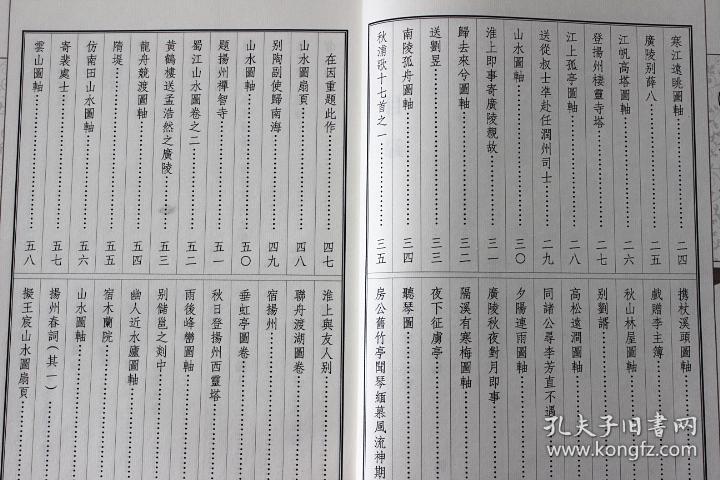 寒江遠眺圖軸……二四
廣陵別薛八……二五
江帆高塔圖軸……二六
登揚州棲靈寺塔……二七
江上孤亭圖軸……二八
送從叔士準赴任潤州司士……二九
山水圖軸……三〇
淮上即事寄廣陵親故……三一
歸去來兮圖軸……三二
送劉昱……三三
南陵孤舟圖軸……三四
秋浦歌十七首之一……三五
携杖溪頭圖軸
戲贈李主簿
秋山林屋圖軸
別劉諝
高松遠澗圖軸
同諸公尋李方直不遇
夕陽連雨圖軸
廣陵秋夜對月即事
隔溪有寒梅圖軸
夜下征虜亭
聽琴圖
房公舊竹亭聞琴緬慕風流神期
在因重題此作……四七
山水圖扇頁……四八
別陶副使歸南海……四九
山水圖軸……五〇
題揚州禪智寺……五一
蜀江山水圖卷之二……五二
黃鶴樓送孟浩然之廣陵……五三
龍舟競渡圖軸……五四
隋堤……五五
仿南田山水圖軸……五六
寄裴處士……五七
雲山圖軸……五八
淮上與友人別
聯舟渡湖圖卷
宿揚州
垂虹亭圖卷
秋日登揚州西靈塔
雨後峰巒圖軸
別儲邕之剡中
幽人近水廬圖軸
宿木蘭院
山水圖軸
揚州春詞（其一）
擬王宸山水圖扇頁
孔夫子旧書网
www.kongfz.com